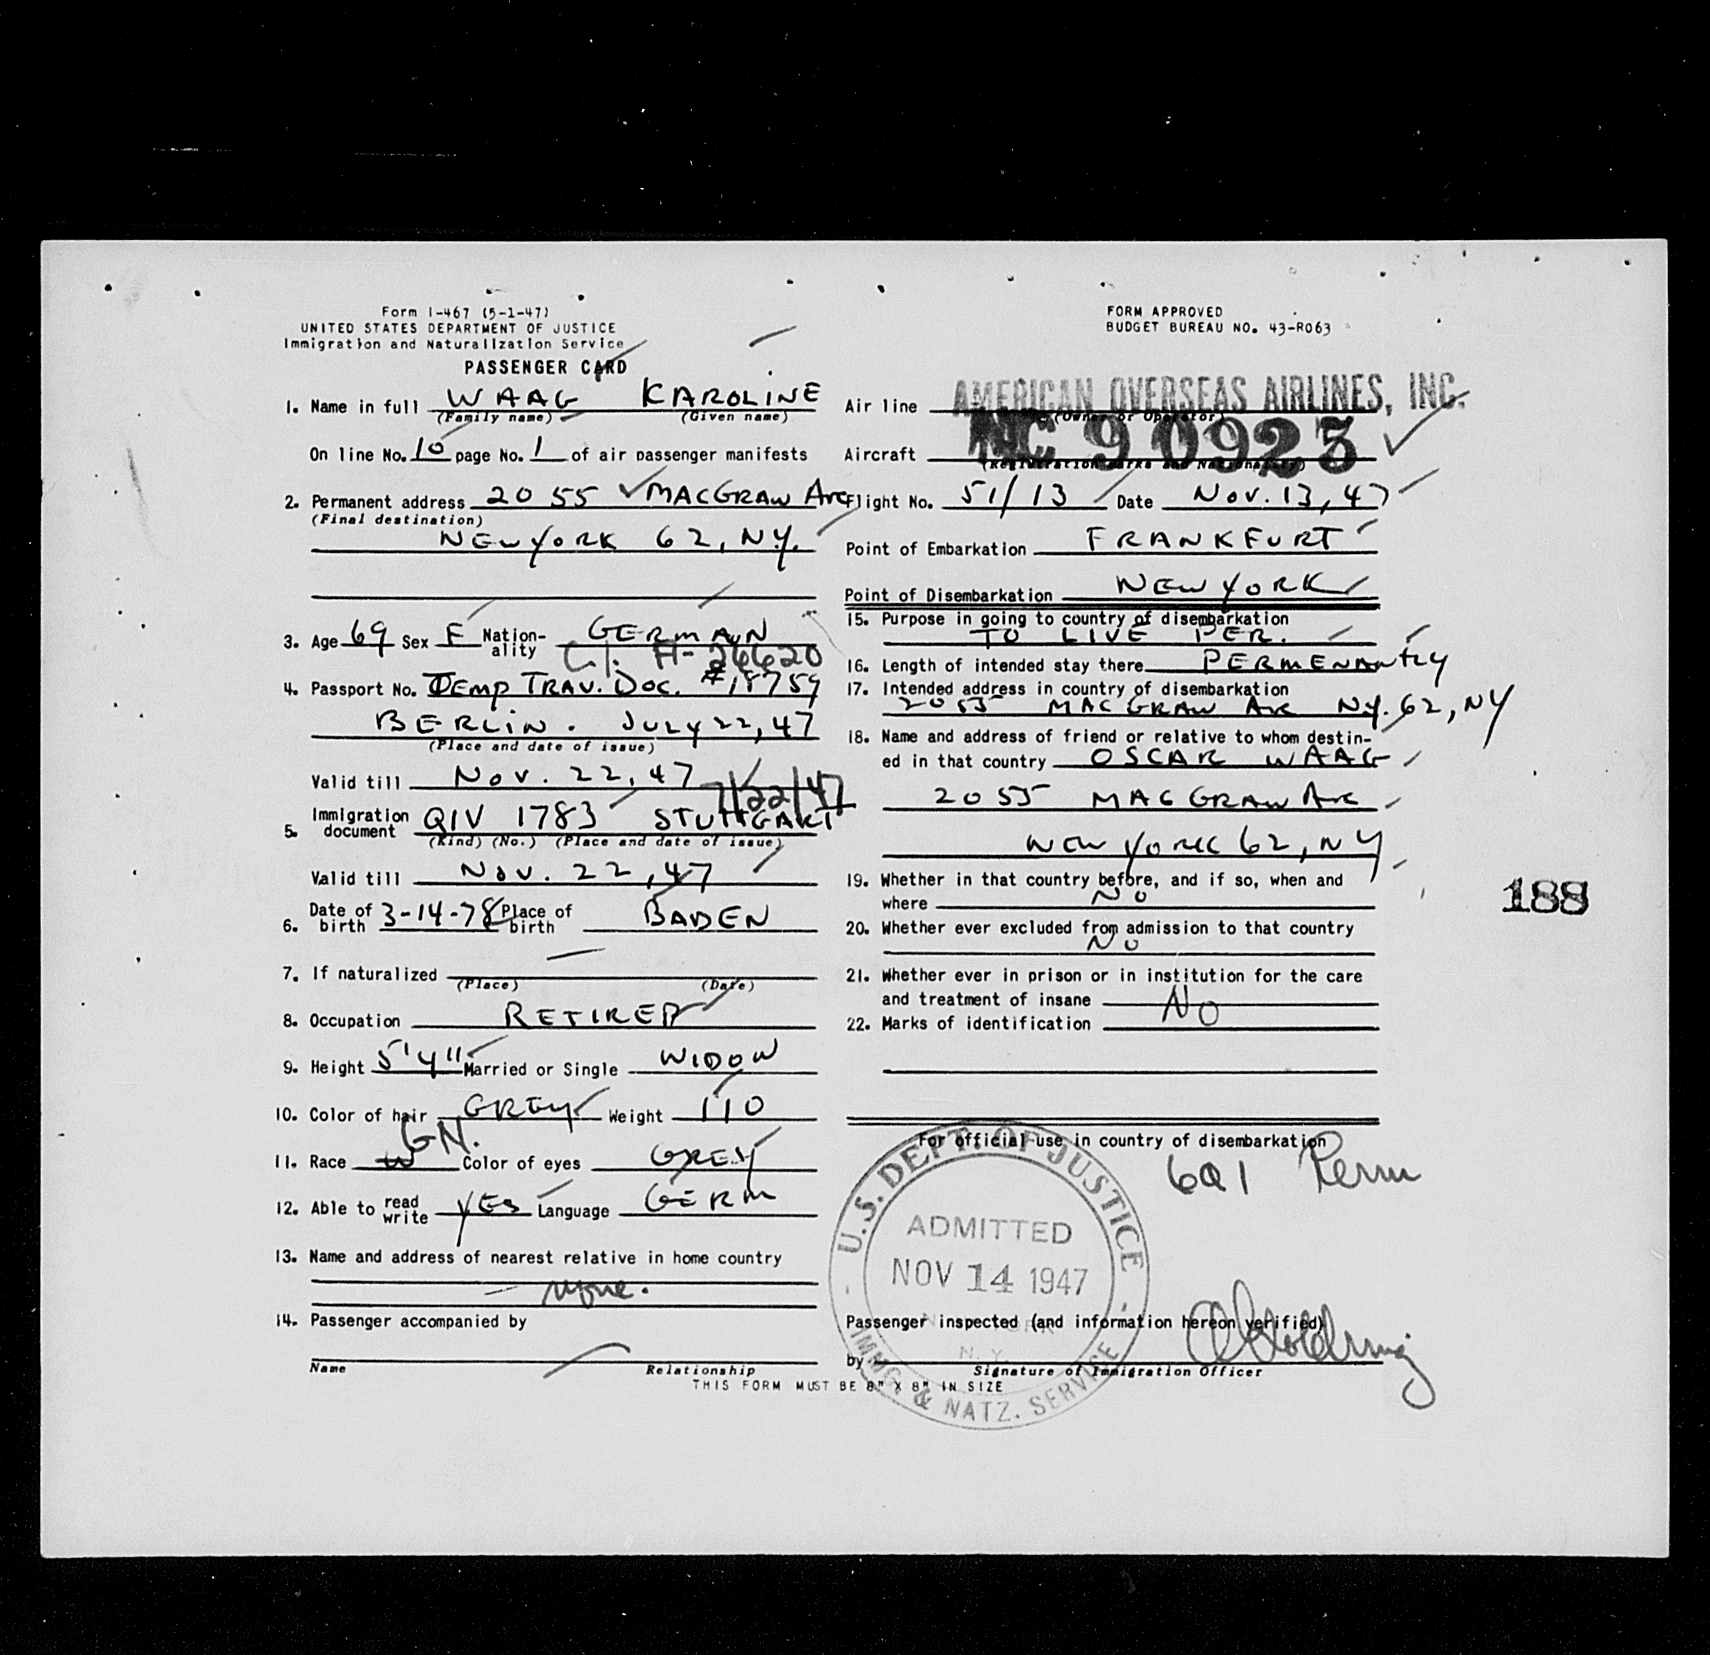 Form I-467 (5-1-47)
UNITED STATES DEPARTMENT OF JUSTICE
Immigration and Naturalization Service
PASSENGER CARD
FORM APPROVED
BUDGET BUREAU NO. 43-R063
1. Name in full WAAG KAROLINE
(Family name) (Given name)
On line No. 10 page No. 1 of air passenger manifests
2. Permanent address 2055 MACGRAW Ave
(Final destination)
NEW YORK 62, N.Y.
3. Age 69 Sex F Nation-ality GERMAN
H-26620
4. Passport No. TEMP TRAV. DOC. #18759
BERLIN. JULY 22, 47
(Place and date of issue)
Valid till NOV. 22, 47
7/22/47
5. Immigration document QIV 1783 STUTTGART
(Kind) (No.) (Place and date of issue)
Valid till NOV. 22, 47
6. Date of birth 3-14-78 Place of birth BADEN
7. If naturalized
(Place) (Date)
8. Occupation RETIRED
9. Height 5'4" Married or Single WIDOW
10. Color of hair GREY Weight 110
GN.
11. Race W Color of eyes GREY
12. Able to read write YES Language GERM
13. Name and address of nearest relative in home country
- none.
14. Passenger accompanied by
Name Relationship
THIS FORM MUST BE 8" X 8" IN SIZE
Air line AMERICAN OVERSEAS AIRLINES, INC.
(Owner or Operator)
Aircraft NC 90923
(Registration marks and Nationality)
Flight No. 51/13 Date NOV. 13, 47
Point of Embarkation FRANKFURT
Point of Disembarkation NEW YORK
15. Purpose in going to country of disembarkation
TO LIVE PER.
16. Length of intended stay there PERMENANTLY
17. Intended address in country of disembarkation
2055 MACGRAW Ave N.Y. 62, NY
18. Name and address of friend or relative to whom destin-
ed in that country OSCAR WAAG
2055 MACGRAW Ave
NEW YORK 62, NY
19. Whether in that country before, and if so, when and
where NO
20. Whether ever excluded from admission to that country
NO
21. Whether ever in prison or in institution for the care
and treatment of insane NO
22. Marks of identification
188
For official use in country of disembarkation
6Q1 Perm
U.S. DEPT. OF JUSTICE
ADMITTED
NOV 14 1947
N.Y.
IMMG. & NATZ. SERVICE
Passenger inspected (and information hereon verified)
by
Signature of Immigration Officer